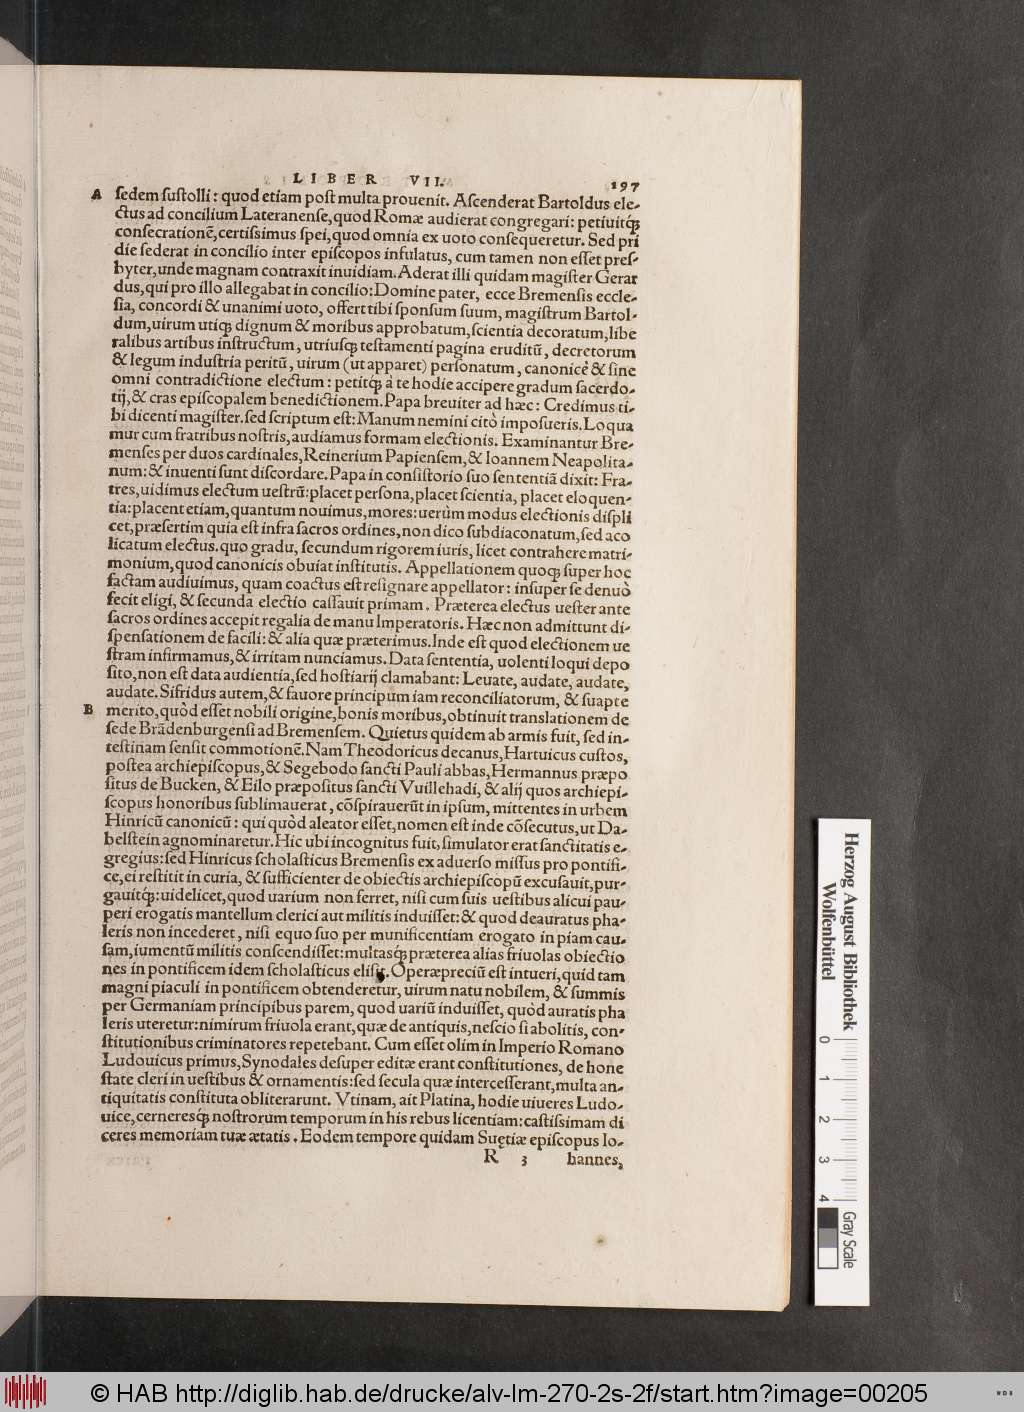 LIBER VII. 197
A ſedem ſuſtolli: quod etiam poſt multa prouenit. Aſcenderat Bartoldus ele-
ctus ad concilium Lateranenſe, quod Romæ audierat congregari: petiuitq́;
conſecrationē, certiſsimus ſpei, quod omnia ex uoto conſequeretur. Sed pri
die ſederat in concilio inter epiſcopos infulatus, cum tamen non eſſet preſ-
byter, unde magnam contraxit inuidiam. Aderat illi quidam magiſter Gerar
dus, qui pro illo allegabat in concilio: Domine pater, ecce Bremenſis eccle-
ſia, concordi & unanimi uoto, offert tibi ſponſum ſuum, magiſtrum Bartol-
dum, uirum utiq; dignum & moribus approbatum, ſcientia decoratum, libe
ralibus artibus inſtructum, utriuſq; teſtamenti pagina eruditū, decretorum
& legum induſtria peritū, uirum (ut apparet) perſonatum, canonicè & ſine
omni contradictione electum: petitq; à te hodie accipere gradum ſacerdo-
tij, & cras epiſcopalem benedictionem. Papa breuiter ad hæc: Credimus ti-
bi dicenti magiſter. ſed ſcriptum eſt: Manum nemini citò impoſueris. Loqua
mur cum fratribus noſtris, audiamus formam electionis. Examinantur Bre-
menſes per duos cardinales, Reinerium Papienſem, & Ioannem Neapolita-
num: & inuenti ſunt diſcordare. Papa in conſiſtorio ſuo ſententiā dixit: Fra-
tres, uidimus electum ueſtrū: placet perſona, placet ſcientia, placet eloquen-
tia: placent etiam, quantum nouimus, mores: uerùm modus electionis diſpli
cet, præſertim quia eſt infra ſacros ordines, non dico ſubdiaconatum, ſed aco
licatum electus. quo gradu, ſecundum rigorem iuris, licet contrahere matri-
monium, quod canonicis obuiat inſtitutis. Appellationem quoq; ſuper hoc
factam audiuimus, quam coactus eſt reſignare appellator: inſuper ſe denuò
fecit eligi, & ſecunda electio caſſauit primam. Præterea electus ueſter ante
ſacros ordines accepit regalia de manu Imperatoris. Hæc non admittunt di-
ſpenſationem de facili: & alia quæ præterimus. Inde eſt quod electionem ue
ſtram infirmamus, & irritam nunciamus. Data ſententia, uolenti loqui depo
ſito, non eſt data audientia, ſed hoſtiarij clamabant: Leuate, audate, audate,
audate. Sifridus autem, & fauore principum iam reconciliatorum, & ſuapte
B merito, quòd eſſet nobili origine, bonis moribus, obtinuit translationem de
ſede Brādenburgenſi ad Bremenſem. Quietus quidem ab armis fuit, ſed in-
teſtinam ſenſit commotionē. Nam Theodoricus decanus, Hartuicus cuſtos,
poſtea archiepiſcopus, & Segebodo ſancti Pauli abbas, Hermannus præpo
ſitus de Bucken, & Eilo præpoſitus ſancti Vuillehadi, & alij quos archiepi-
ſcopus honoribus ſublimauerat, cōſpirauerūt in ipſum, mittentes in urbem
Hinricū canonicū: qui quòd aleator eſſet, nomen eſt inde cōſecutus, ut Da-
belſtein agnominaretur. Hic ubi incognitus fuit, ſimulator erat ſanctitatis e-
gregius: ſed Hinricus ſcholaſticus Bremenſis ex aduerſo miſſus pro pontifi-
ce, ei reſtitit in curia, & ſufficienter de obiectis archiepiſcopū excuſauit, pur-
gauitq́;: uidelicet, quod uarium non ferret, niſi cum ſuis ueſtibus alicui pau-
peri erogatis mantellum clerici aut militis induiſſet: & quod deauratus pha-
leris non incederet, niſi equo ſuo per munificentiam erogato in piam cau-
ſam, iumentū militis conſcendiſſet: multasq́; præterea alias friuolas obiectio
nes in pontificem idem ſcholaſticus eliſit. Operæpreciū eſt intueri, quid tam
magni piaculi in pontificem obtenderetur, uirum natu nobilem, & ſummis
per Germaniam principibus parem, quod uariū induiſſet, quòd auratis pha
leris uteretur: nimirum friuola erant, quæ de antiquis, neſcio ſi abolitis, con-
ſtitutionibus criminatores repetebant. Cum eſſet olim in Imperio Romano
Ludouicus primus, Synodales deſuper editæ erant conſtitutiones, de hone
ſtate cleri in ueſtibus & ornamentis: ſed ſecula quæ interceſſerant, multa an-
tiquitatis conſtituta obliterarunt. Vtinam, ait Platina, hodie uiueres Ludo-
uice, cerneresq́; noſtrorum temporum in his rebus licentiam: caſtiſsimam di
ceres memoriam tuæ ætatis. Eodem tempore quidam Suetiæ epiſcopus Io-
R 3 hannes,
Herzog August Bibliothek
Wolfenbüttel
0 1 2 3 4
Gray Scale
© HAB http://diglib.hab.de/drucke/alv-lm-270-2s-2f/start.htm?image=00205